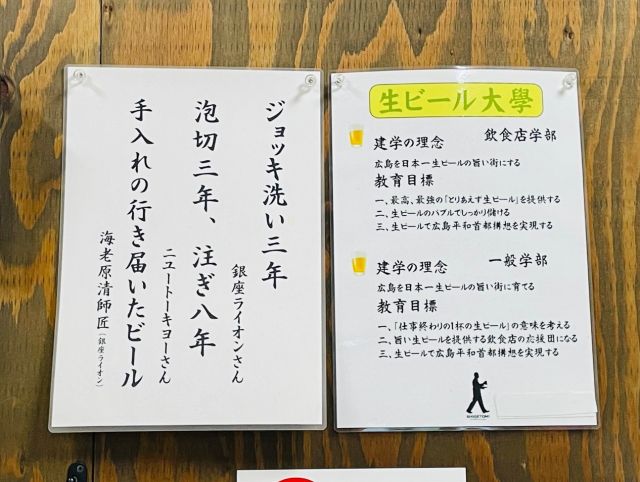 ジョッキ洗い三年
銀座ライオンさん
泡切三年、注ぎ八年
ニユートーキヨーさん
手入れの行き届いたビール
海老原清師匠(銀座ライオン)
生ビール大學
建学の理念 飲食店学部
広島を日本一生ビールの旨い街にする
教育目標
一、最高、最強の「とりあえず生ビール」を提供する
二、生ビールのバブルでしっかり儲ける
三、生ビールで広島平和首都構想を実現する
建学の理念 一般学部
広島を日本一生ビールの旨い街に育てる
教育目標
一、「仕事終わりの1杯の生ビール」の意味を考える
二、旨い生ビールを提供する飲食店の応援団になる
三、生ビールで広島平和首都構想を実現する
SHIGETOMI